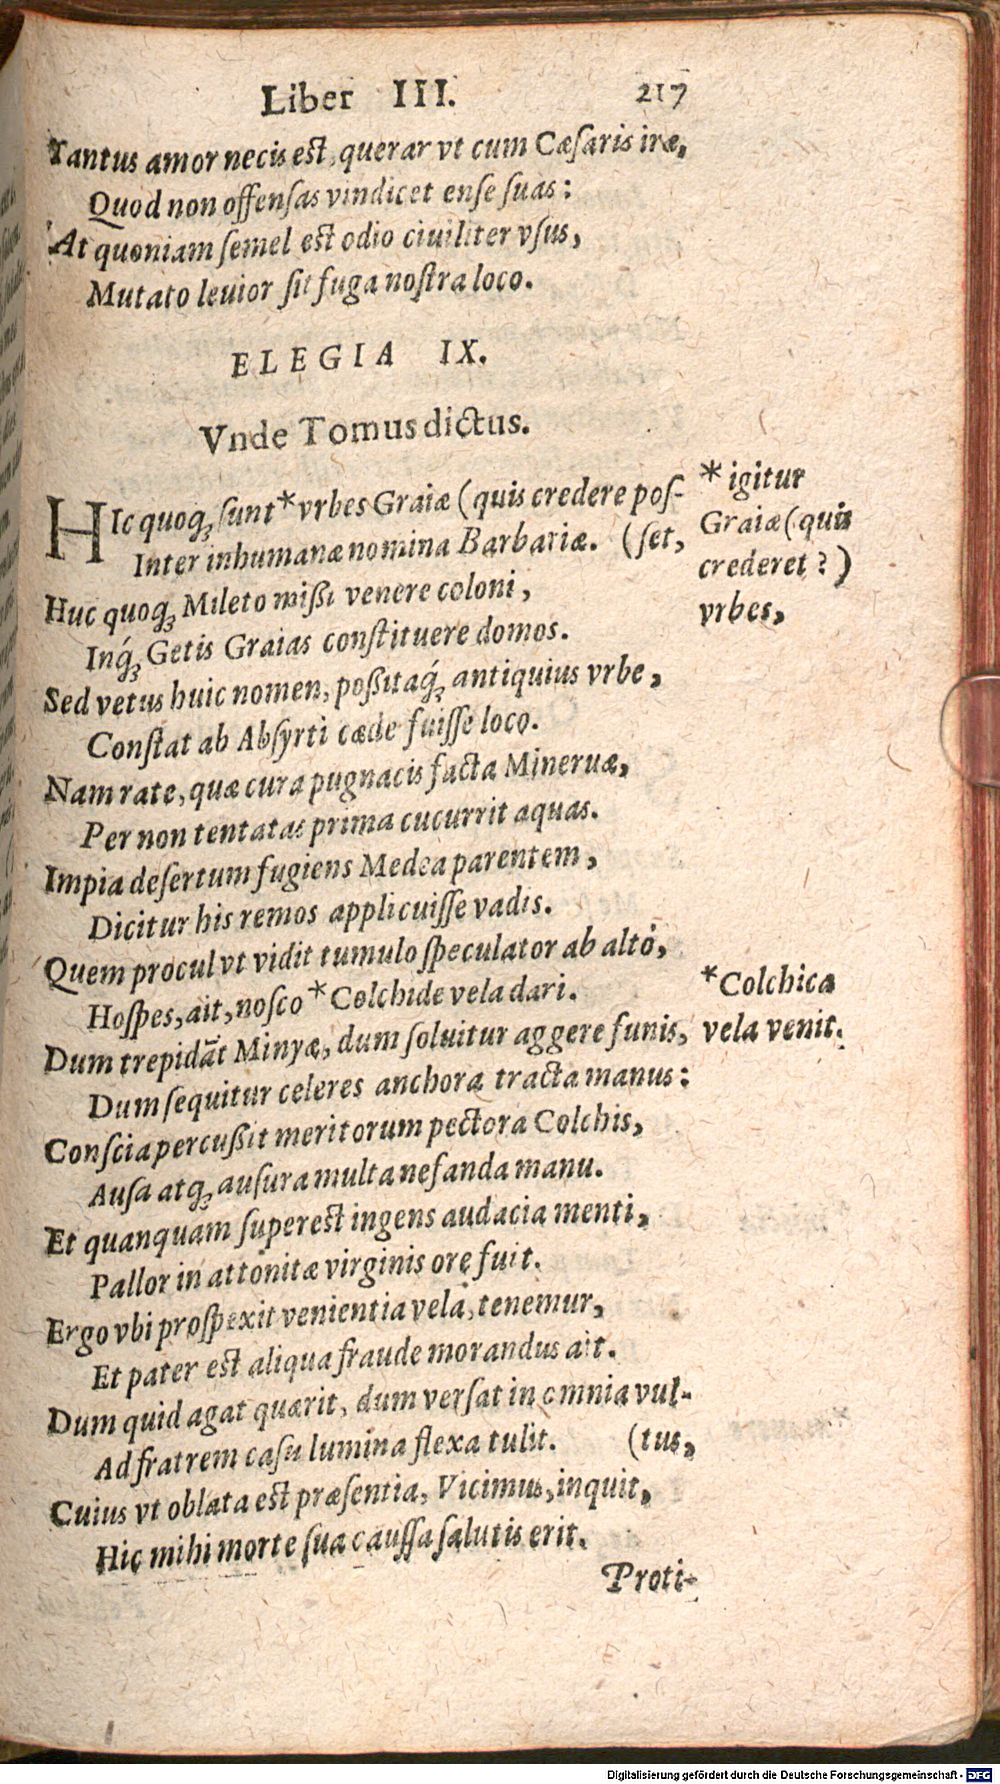 Liber III. 217
Tantus amor necis est, querar vt cum Cæsaris iræ,
Quod non offensas vindicet ense suas:
At quoniam semel est odio ciuiliter vsus,
Mutato leuior sit fuga nostra loco.
ELEGIA IX.
Vnde Tomus dictus.
HIc quoq; sunt * vrbes Graiæ (quis credere pos-
Inter inhumanæ nomina Barbariæ. (set,
Huc quoq; Mileto missi venere coloni,
Inq́; Getis Graias constituere domos.
Sed vetus huic nomen, positaq́; antiquius vrbe,
Constat ab Absyrti cæde fuisse loco.
Nam rate, quæ cura pugnacis facta Mineruæ,
Per non tentatas prima cucurrit aquas.
Impia desertum fugiens Medea parentem,
Dicitur his remos applicuisse vadis.
Quem procul vt vidit tumulo speculator ab alto,
Hospes, ait, nosco * Colchide vela dari.
Dum trepidāt Minyæ, dum soluitur aggere funis,
Dum sequitur celeres anchora tracta manus:
Conscia percussit meritorum pectora Colchis,
Ausa atq; ausura multa nefanda manu.
Et quanquam superest ingens audacia menti,
Pallor in attonitæ virginis ore fuit.
Ergo vbi prospexit venientia vela, tenemur,
Et pater est aliqua fraude morandus ait.
Dum quid agat quærit, dum versat in omnia vul-
Ad fratrem casu lumina flexa tulit. (tus,
Cuius vt oblata est præsentia, Vicimus, inquit,
Hic mihi morte sua caussa salutis erit.
Proti-
* igitur
Graiæ (quis
crederet?)
vrbes,
* Colchica
vela venit.
Digitalisierung gefördert durch die Deutsche Forschungsgemeinschaft - DFG